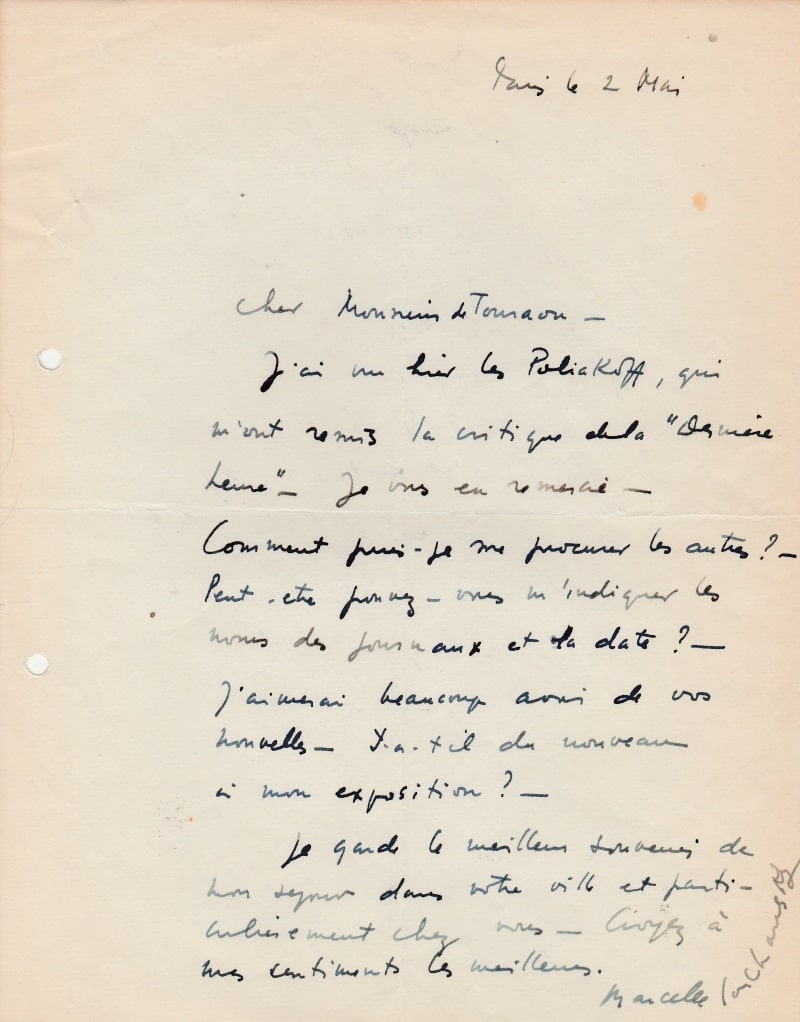 Paris le 2 Mai
Cher Monsieur de
J'ai vu hier les Poliakoff, qui
m'ont remis la critique de la "Dernière
heure" – Je vous en remercie –
Comment puis-je me procurer les autres ? –
Peut-etre pouvez-vous m'indiquer les
noms des journaux et la date ? –
J'aimerai beaucoup avoir de vos
nouvelles – Y-a-t-il du nouveau
à mon exposition ? –
Je garde le meilleur souvenir de
mon sejour dans votre ville et parti-
culièrement chez vous – Croyez à
mes sentiments les meilleurs.
Marcelle Loubchansky